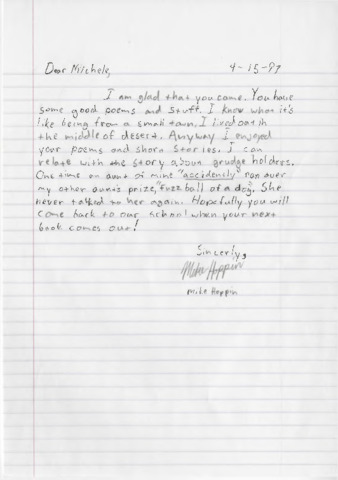 Dear Michele, 4-15-97
I am glad that you came. You have
some good poems and stuff. I know what it's
like being from a small town. I lived out in
the middle of desert. Anyway I enjoyed
your poems and short stories. I can
relate with the story about grudge holders.
One time an aunt of mine "accidently" ran over
my other aunt's prize, "fuzz ball of a dog". She
never talked to her again. Hopefully you will
come back to our school when your next
book comes out!
Sincerly,
Mike Heppin
Mike Heppin